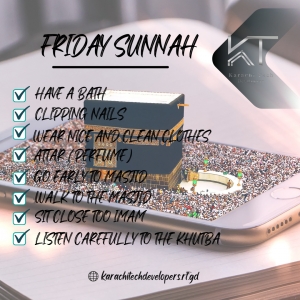 FRIDAY SUNNAH
KT
HAVE A BATH
CLIPPING NAILS
WEAR NICE AND CLEAN CLOTHES
ATTAR (PERFUME)
GO EARLY TO MASJID
WALK TO THE MASJID
SIT CLOSE TOO IMAM
LISTEN CAREFULLY TO THE KHUTBA
karachitechdevelopers.rf.gd